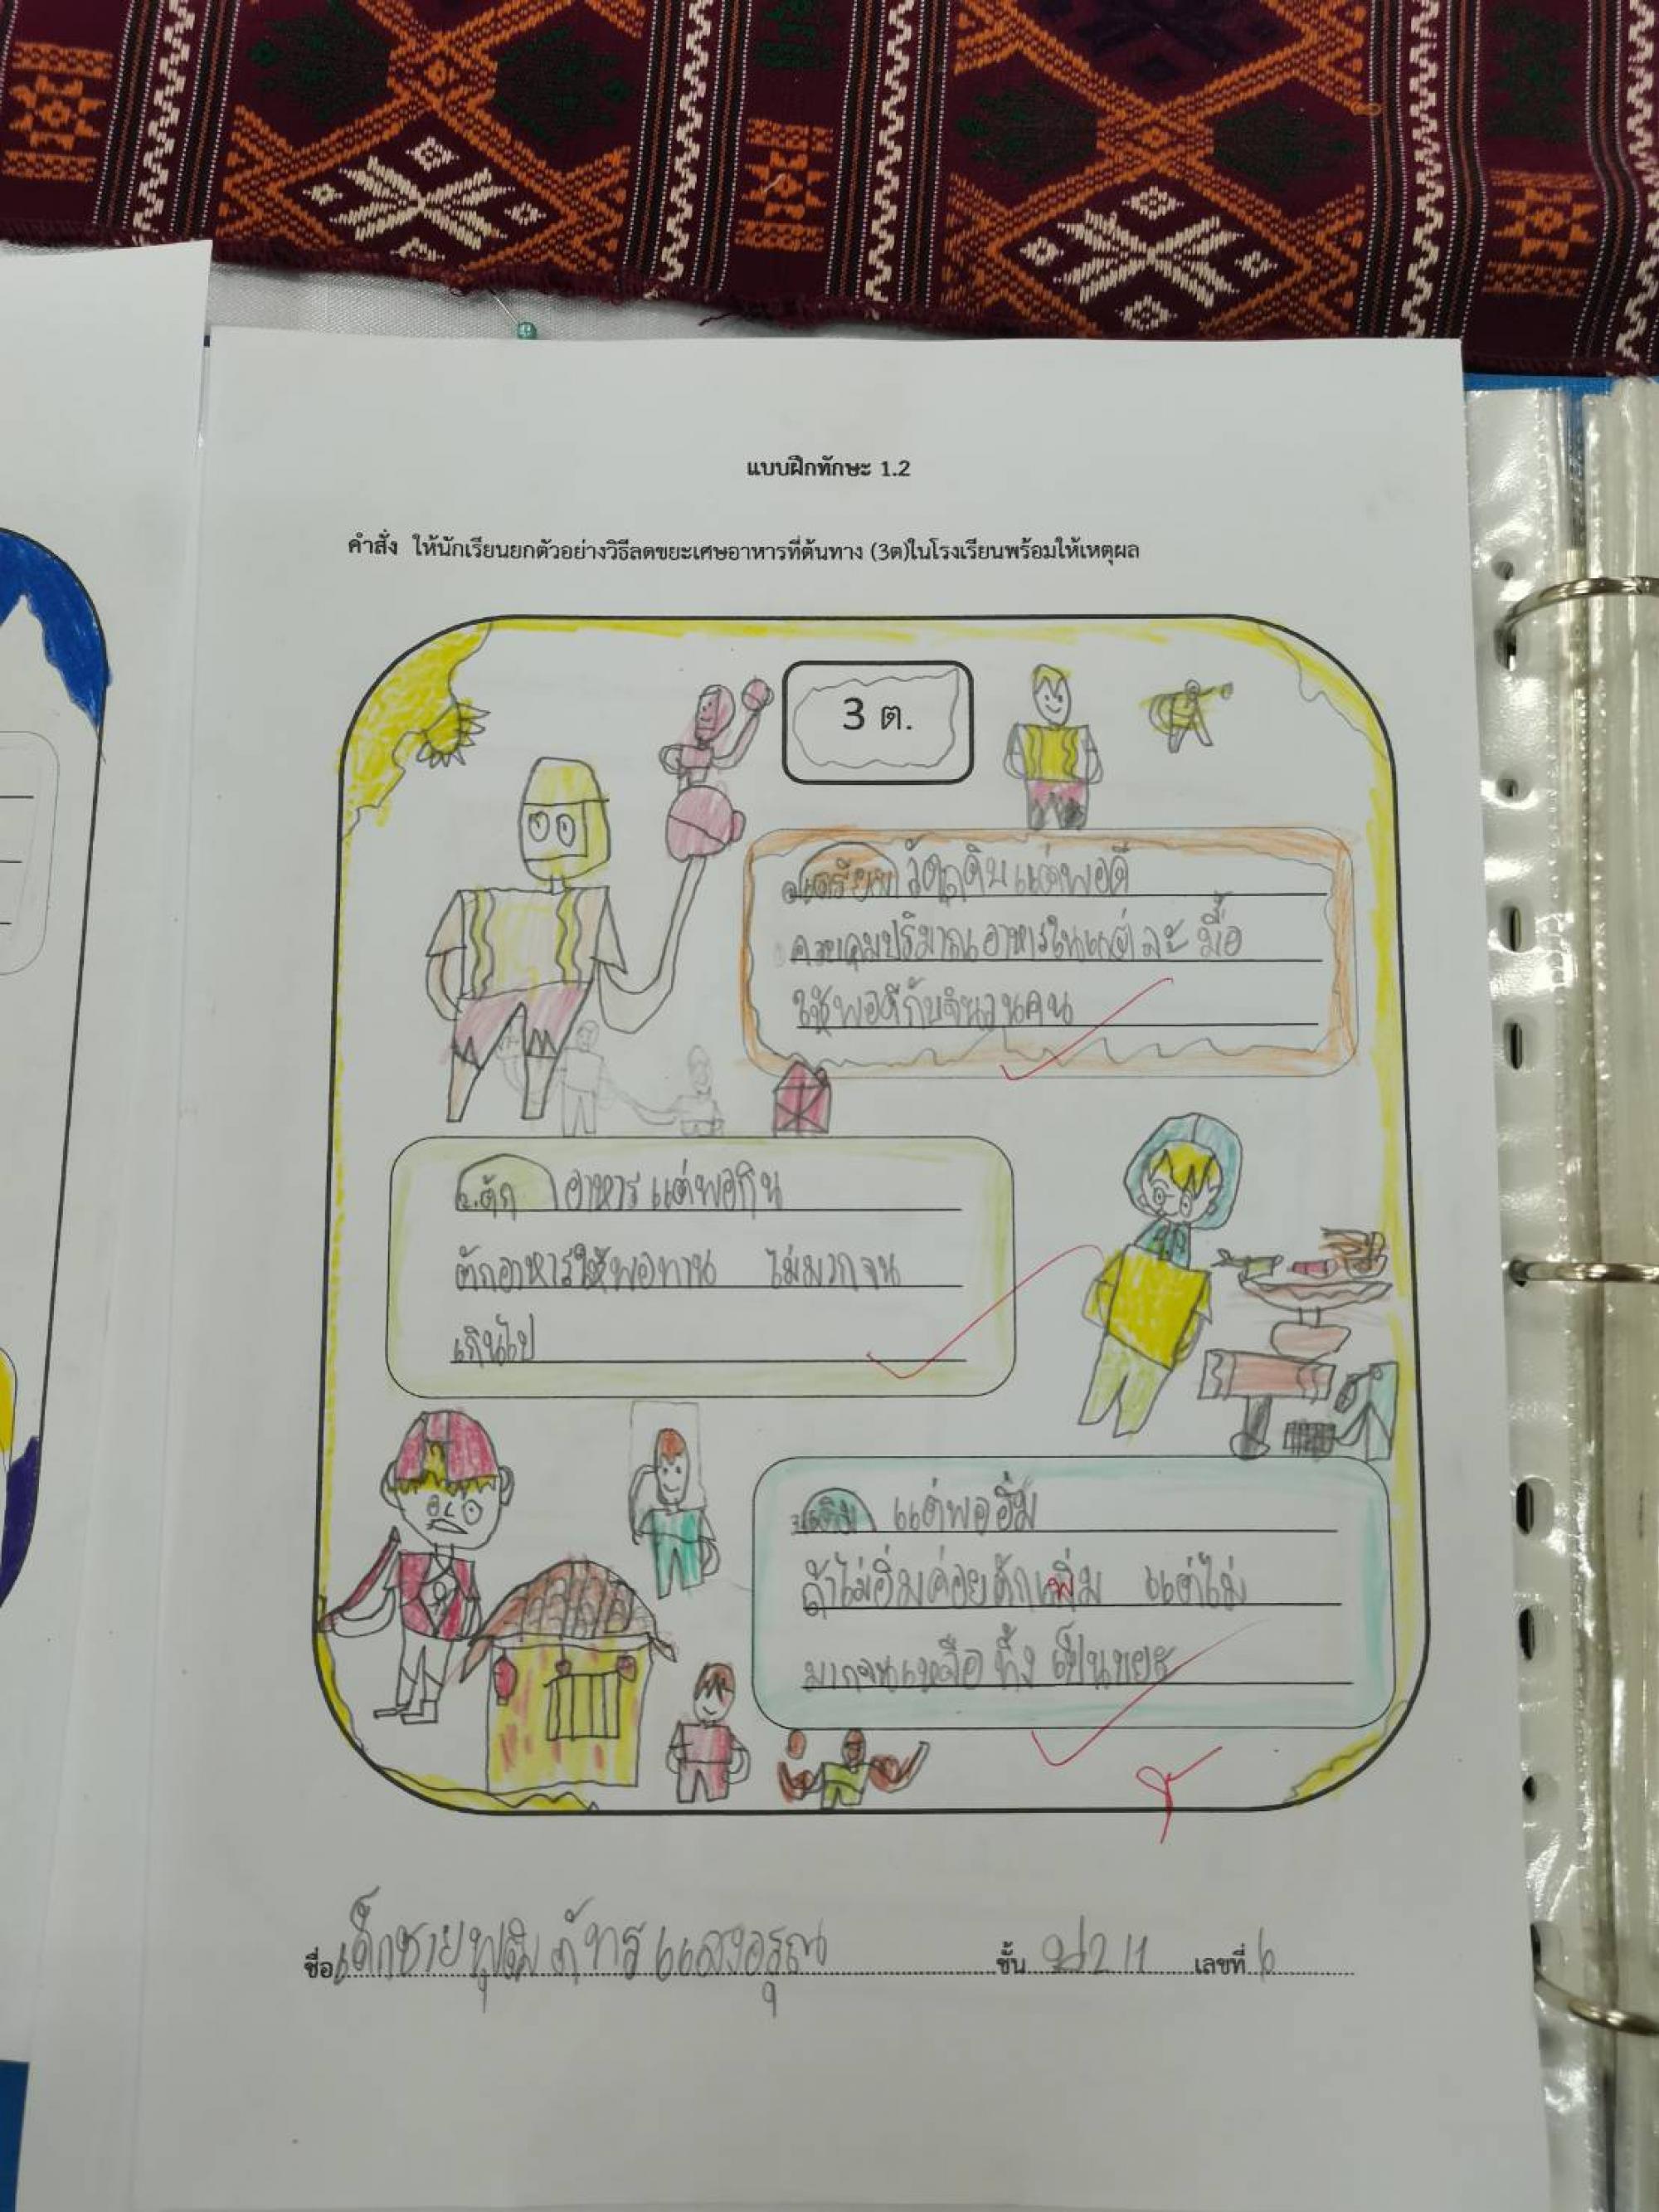 แบบฝึกทักษะ 1.2
คำสั่ง ให้นักเรียนยกตัวอย่างวิธีลดขยะเศษอาหารที่ต้นทาง (3ต)ในโรงเรียนพร้อมให้เหตุผล
3 ต.
1.เตรียม วัตถุดิบแต่พอดี
ควบคุมปริมาณอาหารในแต่ละ มื้อ
ให้พอดีกับจำนวนคน
2.ตัก อาหาร แต่พอกิน
ตักอาหารให้พอทาน ไม่มากจน
เกินไป
3.เติม แต่พออิ่ม
ถ้าไม่อิ่มค่อยตักเพิ่ม แต่ไม่
มากจนเหลือ ทิ้ง เป็นขยะ
ชื่อ เด็กชาย แสงอรุณ ชั้น ป2/1 เลขที่ 6